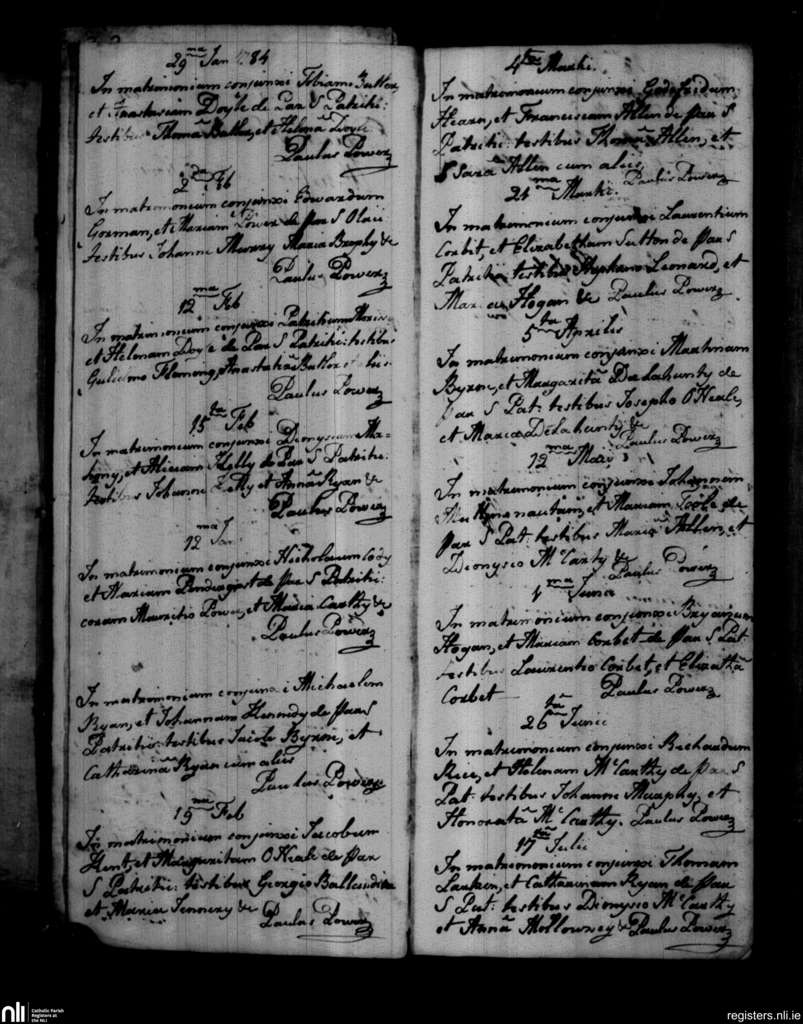 29ma Jan 1784
In matrimonium conjunxi Tobiam Butler
et Anastasiam Doyle de Par S Patritii:
testibus Thoma Butler, et Helena Doyle
Paulus Power
2da Feb
In matrimonium conjunxi Edwardum
Gorman, et Mariam Power de par S Olaii
testibus Johanne Murray Maria Brophy &c
Paulus Power
12ma Feb
In matrimonium conjunxi Patritium
et Helenam Doyle de Par S Patritii: testibus
Gulielmo Flemong, Anastatiâ Butler et aliis
Paulus Power
15ta Feb
In matrimonium conjunxi Dionysium Ma-
hony, et Aliciam Kelly de Par S Patritii:
testibus Johanne Kelly et Annâ Ryan &c
Paulus Power
12ma Jan
In matrimonium conjunxi Nicholaum Cody
et Mariam Pendergast de Par S Patritii:
coram Mauritio Power, et Maria Carthy &c
Paulus Power
In matrimonium conjunxi Michaelem
Ryan, et Johannam Kennedy de Par S
Patritii: testibus Jacobo Byrne, et
Catharinâ Ryan cum aliis
Paulus Power
15ma Feb
In matrimonium conjunxi Jacobum
Hunt, et Margaritam O Neale de Par
S Patritii: testibus Georgio
et Maria Tennery &c Paulus Power
4ta Martii.
In matrimonium conjunxi Godefridum
Hearn, et Franciscam Allen de Par S
Patritii: testibus Thoma Allen, et
Sara Allen cum aliis
Paulus Power
21ma Martii.
In matrimonium conjunxi Laurentium
Corbit, et Elizabetham Sutton de Par S
Patritii testibus Stephano Leonard, et
Maria Hogan &c Paulus Power
5ta Aprilis
In matrimonium conjunxi Martinum
Byrne, et Margaritâ Delahunty de
Par S Pat: testibus Josepho O Neale,
et Maria Delahunty &c
Paulus Power
12ma Maii
In matrimonium conjunxi Johannem
nautam, et Mariam Toole de
Par S Pat: testibus Maria Allen, et
Dionysio McCarty &c
Paulus Power
1ma Junii
In matrimonium conjunxi Bryanum
Hogan, et Mariam Corbet de Par S Pat
testibus Laurentio Corbet, et Elizathâ
Corbet Paulus Power
26ta Junii
In matrimonium conjunxi Richardum
Rice, et Helenam McCarthy de Par S
Pat: testibus Johanne Murphy, et
Honoratâ McCarthy. Paulus Power
17ma Julii
In matrimonium conjunxi Thomam
et Catharinam Ryan de Par
S Pat: testibus Dionysio McCarthy
et Annâ Mollowney &c Paulus Power
nli Catholic Parish
Registers at
the NLI
registers.nli.ie